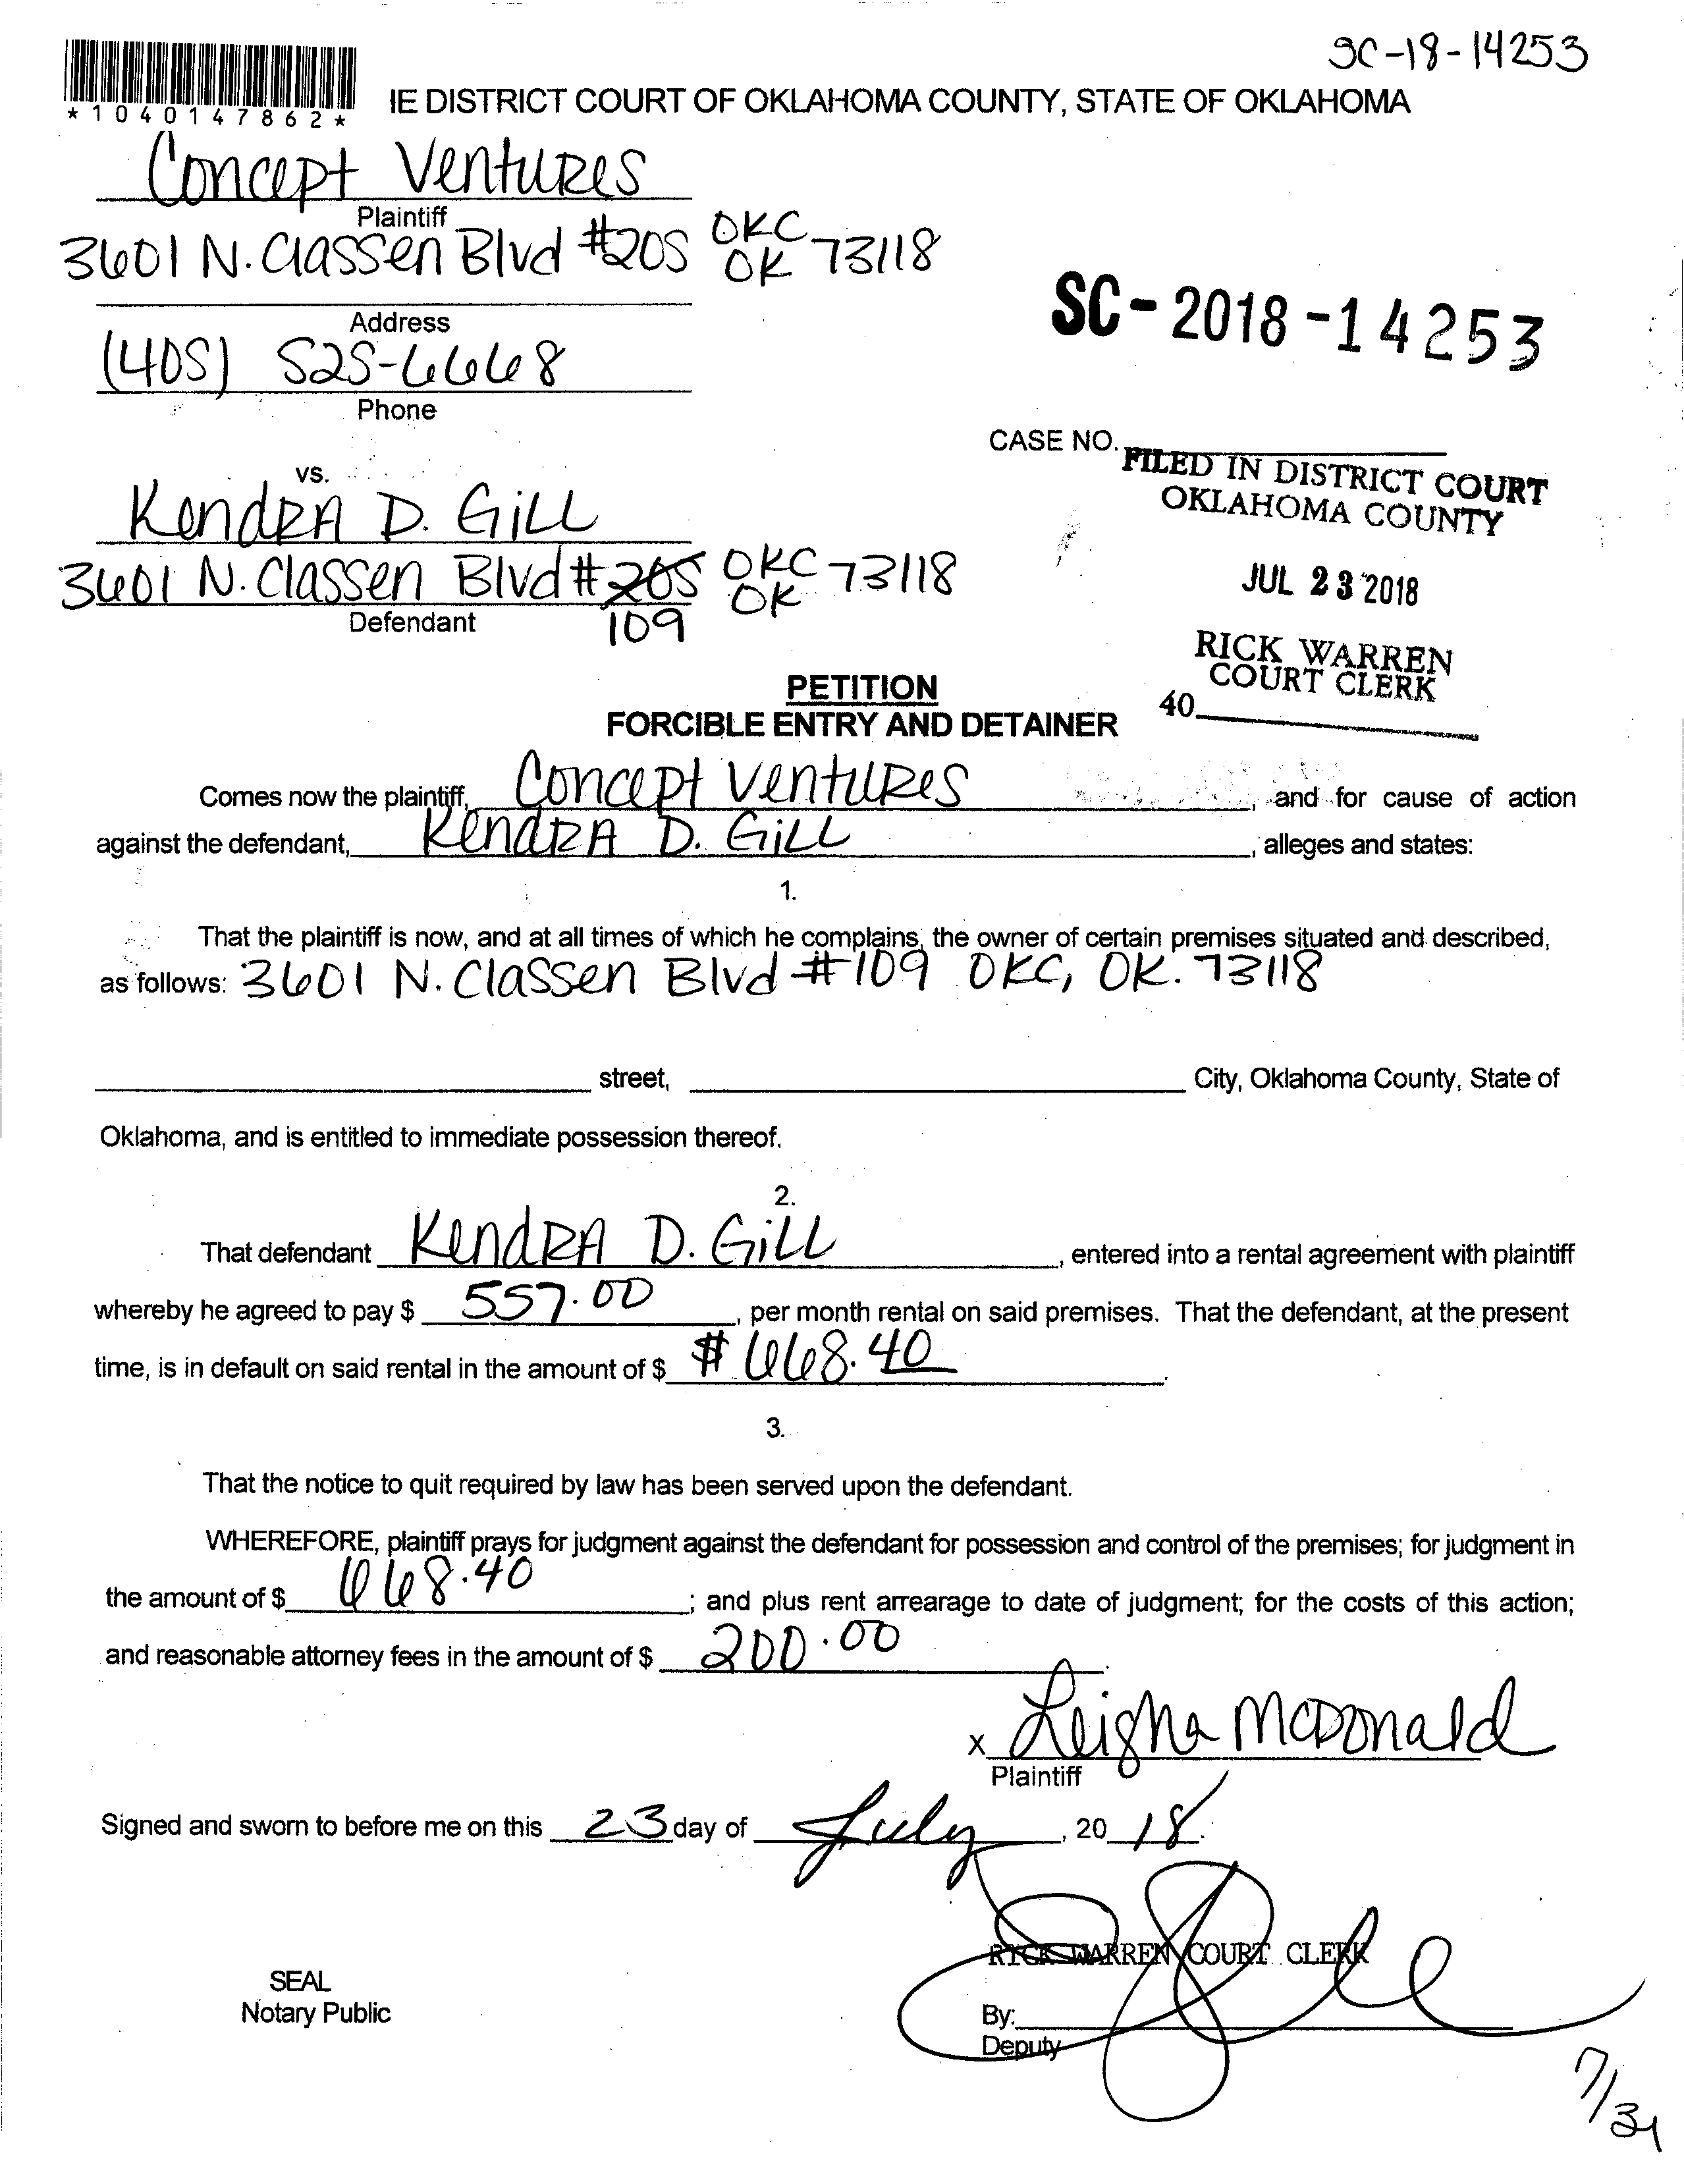 SC-18-14253
*1040147862*
IE DISTRICT COURT OF OKLAHOMA COUNTY, STATE OF OKLAHOMA
Concept Ventures
Plaintiff
3601 N. Classen Blvd #205 OKC OK 73118
Address
SC-2018-14253
(405) 525-6668
Phone
CASE NO.
FILED IN DISTRICT COURT
OKLAHOMA COUNTY
vs.
Kendra D. Gill
3601 N. Classen Blvd # 205 OKC OK 73118
Defendant
109
JUL 23 2018
RICK WARREN
COURT CLERK
40
PETITION
FORCIBLE ENTRY AND DETAINER
Comes now the plaintiff, Concept Ventures, and for cause of action
against the defendant, Kendra D. Gill, alleges and states:
1.
That the plaintiff is now, and at all times of which he complains, the owner of certain premises situated and described,
as follows: 3601 N. Classen Blvd #109 OKC, OK. 73118
street, City, Oklahoma County, State of
Oklahoma, and is entitled to immediate possession thereof.
2.
That defendant Kendra D. Gill, entered into a rental agreement with plaintiff
whereby he agreed to pay $ 557.00, per month rental on said premises. That the defendant, at the present
time, is in default on said rental in the amount of $ # 668.40.
3.
That the notice to quit required by law has been served upon the defendant.
WHEREFORE, plaintiff prays for judgment against the defendant for possession and control of the premises; for judgment in
the amount of $ 668.40; and plus rent arrearage to date of judgment; for the costs of this action;
and reasonable attorney fees in the amount of $ 200.00.
x Leigha McDonald
Plaintiff
Signed and sworn to before me on this 23 day of July, 20 18.
RICK WARREN COURT CLERK
SEAL
Notary Public
By:
Deputy
7/31